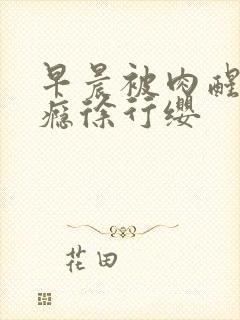 早晨被肉醒
瘾徐行缨
花田